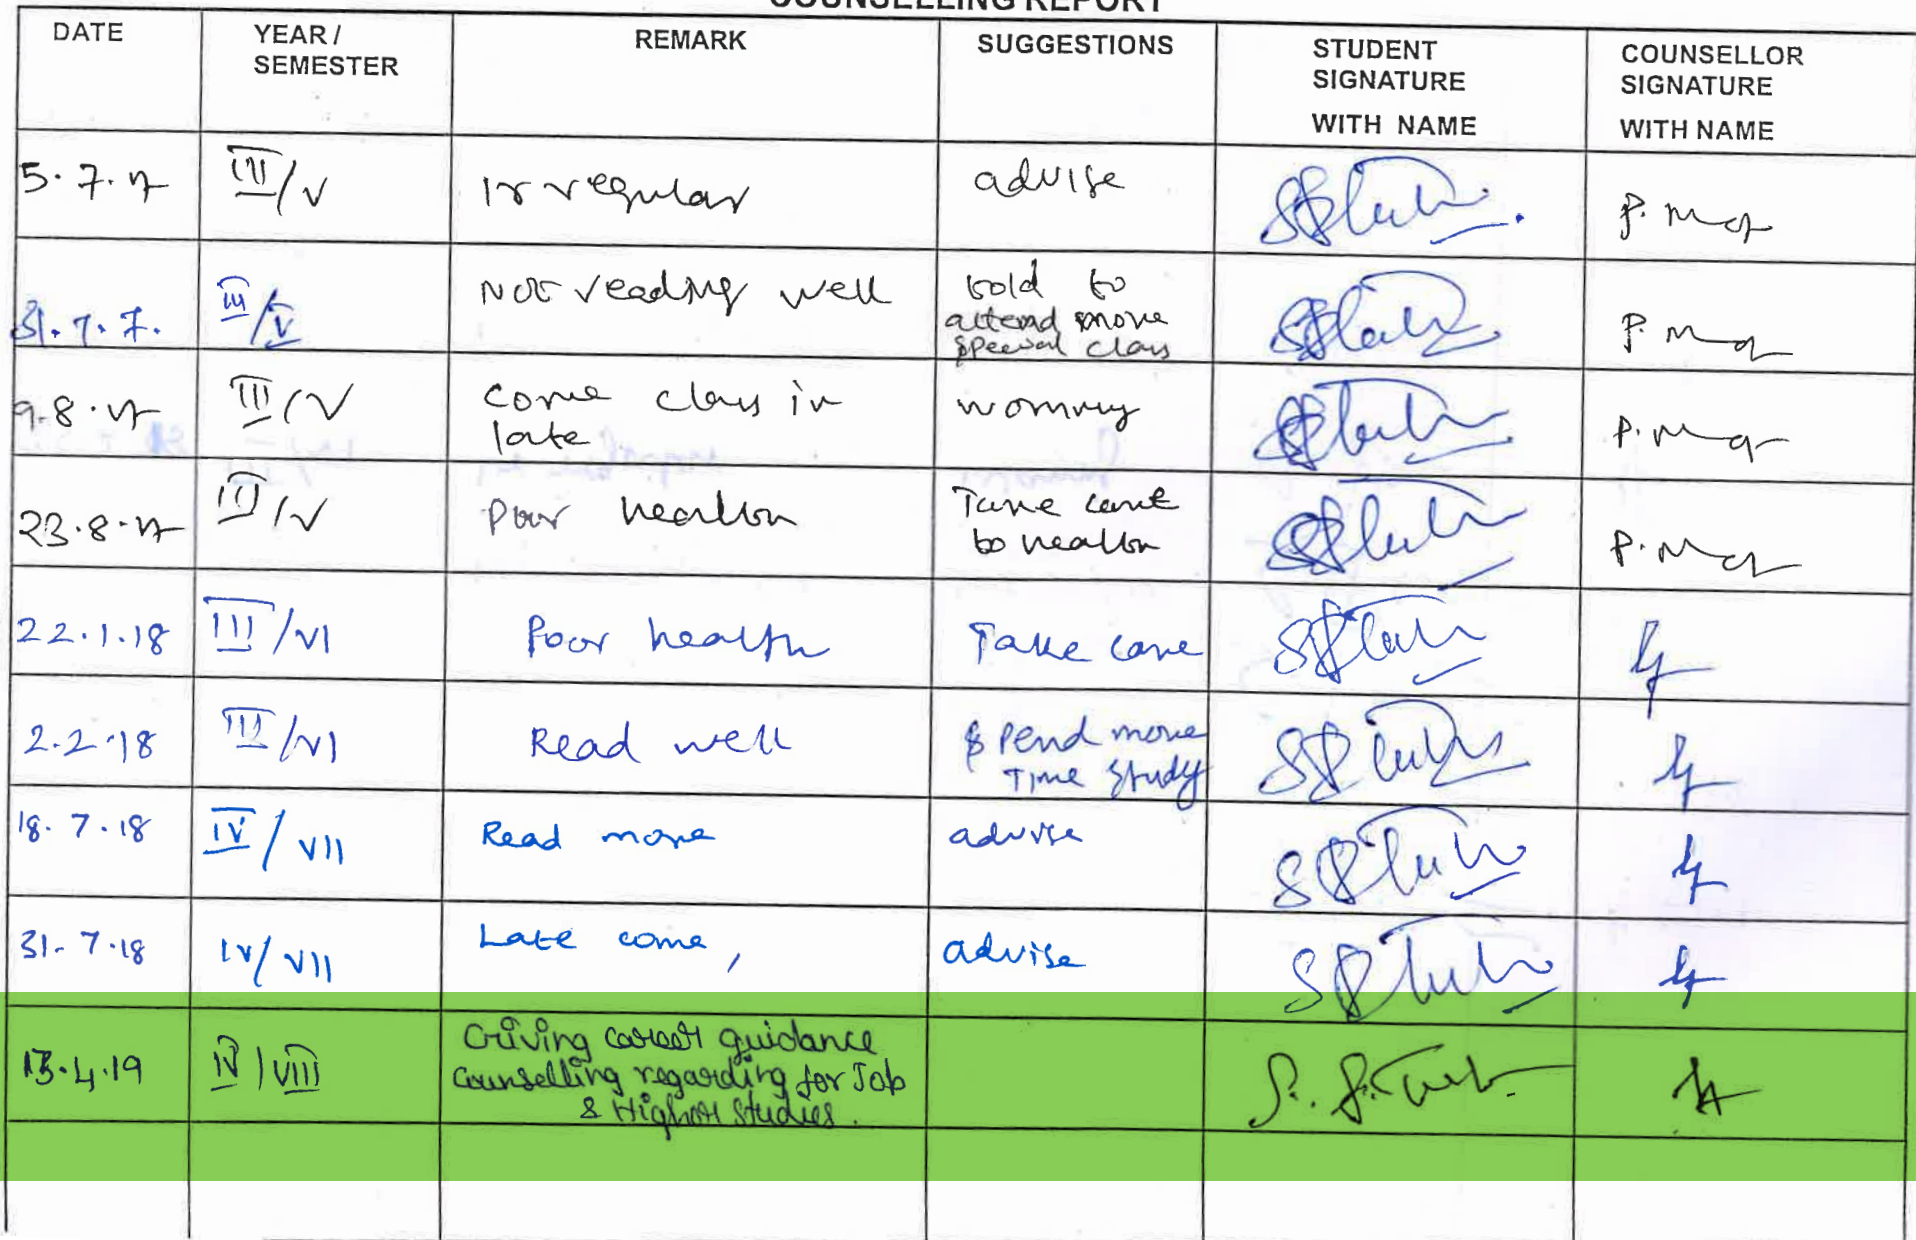 COUNSELLING REPORT
DATE YEAR / SEMESTER REMARK SUGGESTIONS STUDENT SIGNATURE WITH NAME COUNSELLOR SIGNATURE WITH NAME
5.7.17 III/V Irregular advise
31.7.7. III/V Not reading well told to
attend more
special class
9.8.17 III/V come class in
late
23.8.17 III/V Poor health Take care
to health
22.1.18 III/VI Poor health Take care
2.2.18 III/VI Read well spend more
Time study
18.7.18 IV/VII Read more advise
31.7.18 IV/VII Late come, advise
13.4.19 IV/VIII Giving career guidance
counselling regarding for Job
& Higher studies.